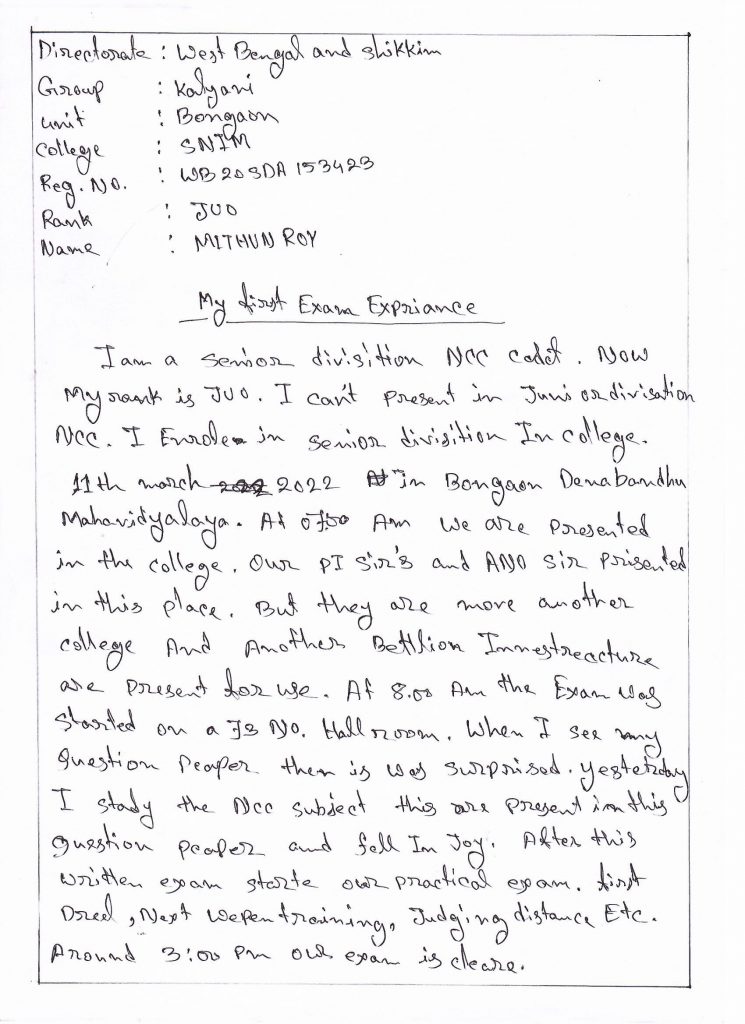 Directorate : West Bengal and shikkim
Group : Kalyani
unit : Bongaon
College : SNIM
Reg. No. : WB20SDA153423
Rank : JUO
Name : MITHUN ROY
My first Exam Expriance
I am a senior divisition NCC cadet. Now
My rank is JUO. I can't present in Junior divisation
NCC. I Enrole in senior divisition In college.
11th march 2022 in Bongaon Denabandhu
Mahavidyalaya. At 0700 Am we are presented
in the college. Our PI Sir's and ANO Sir prisented
in this place. But they are more another
college And Another Bettlion Innestreacture
are present for use. At 8.00 Am the Exam was
started on a J3 No. Hall room. When I see my
Question Peaper then is was surprised. yesteterday
I study the Ncc subject this are present in this
question peaper and fell In Joy. After this
written exam starte our practical exam. first
Dreel, Next wepen training, Judging distance Etc.
Around 3:00 Pm our exam is cleare.